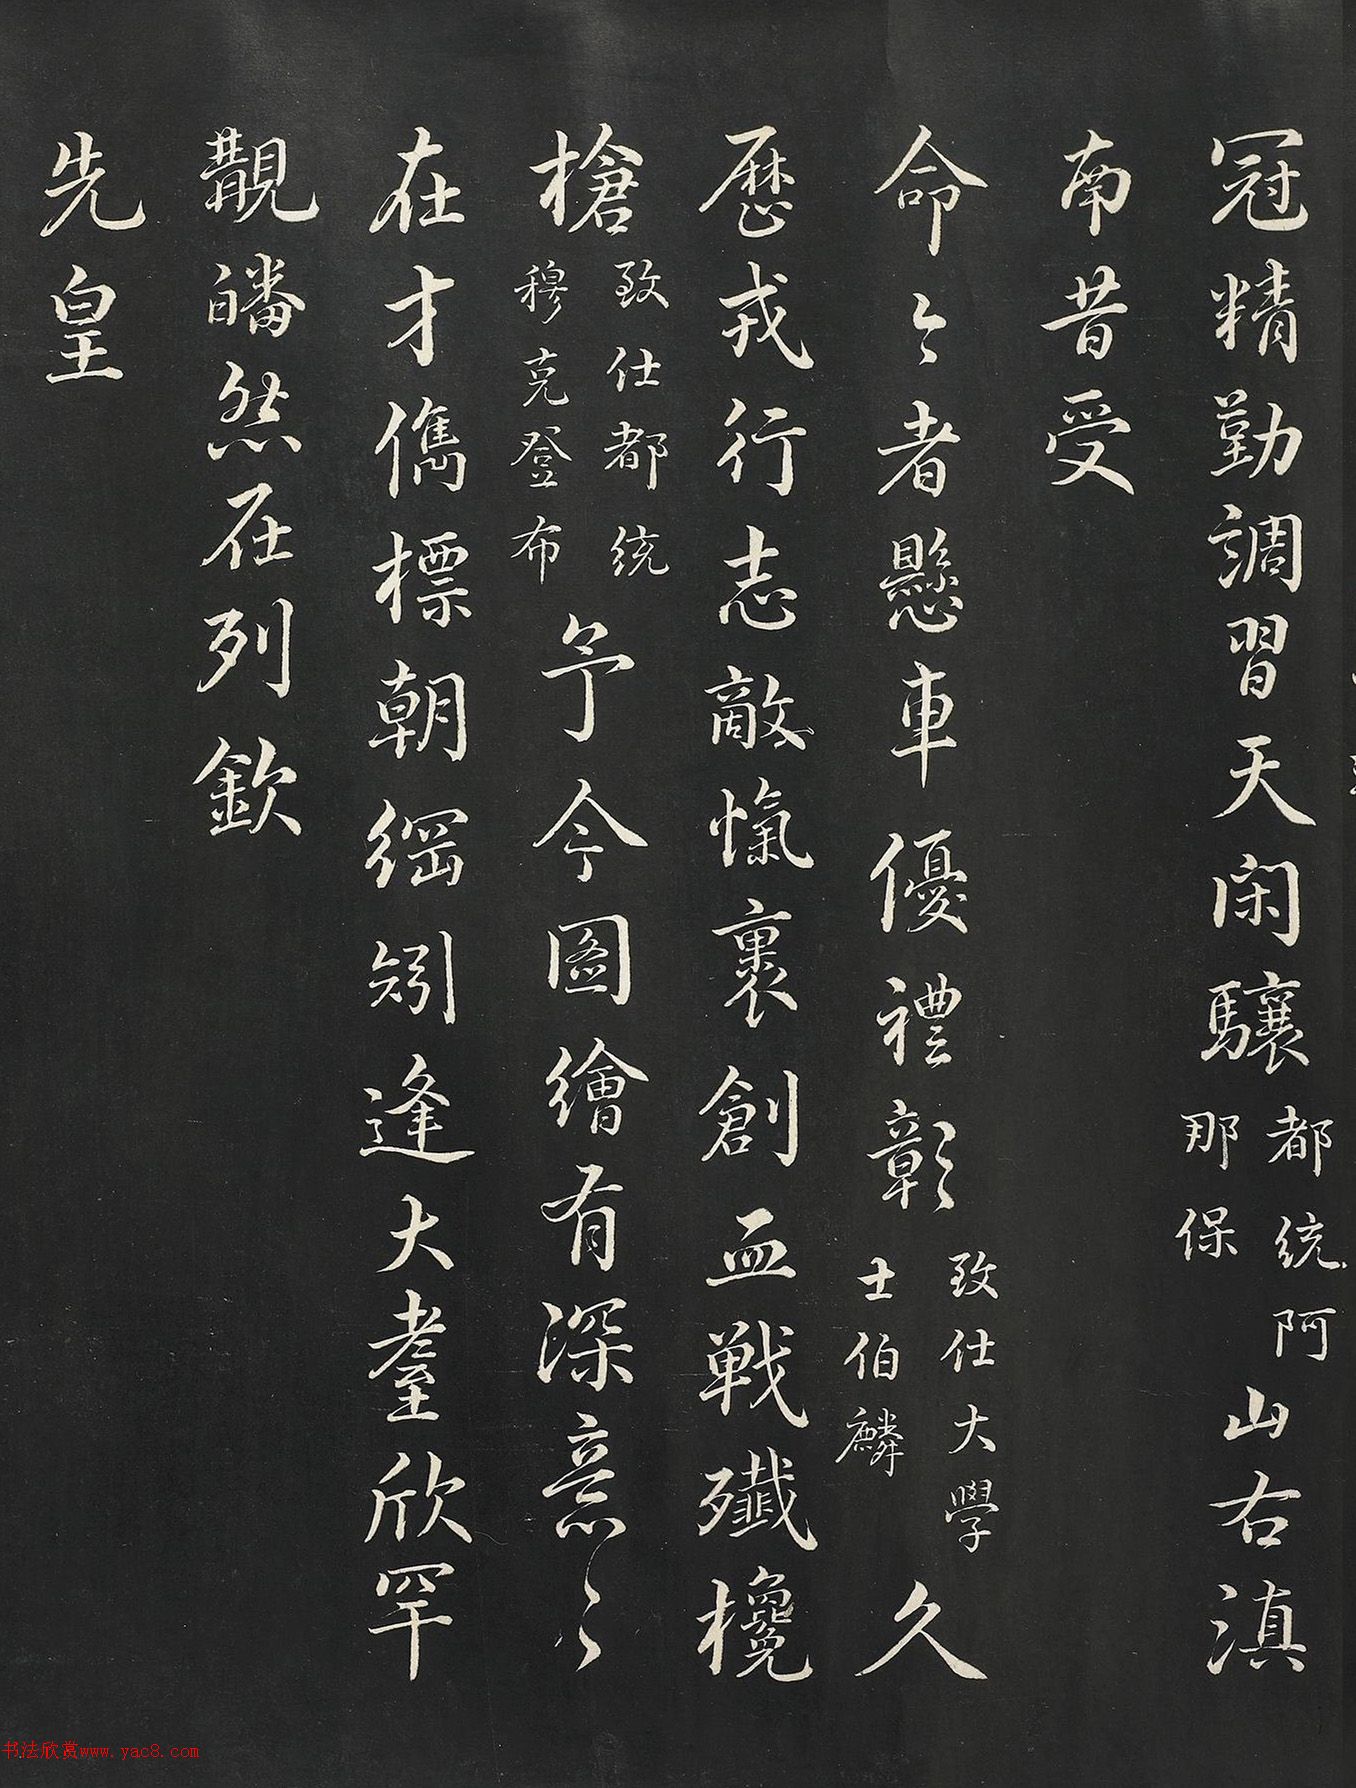 冠精勤調習天閑驤都統阿那保山右滇
南昔受
命々者懸車優禮彰致仕大學士伯麟久
歷戎行志敵愾裹創血戰殲欃
槍致仕都統穆克登布予今圖繪有深意々
在才儁標朝綱矧逢大耋欣罕
覯皤然在列欽
先皇
书法欣赏www.yac8.com